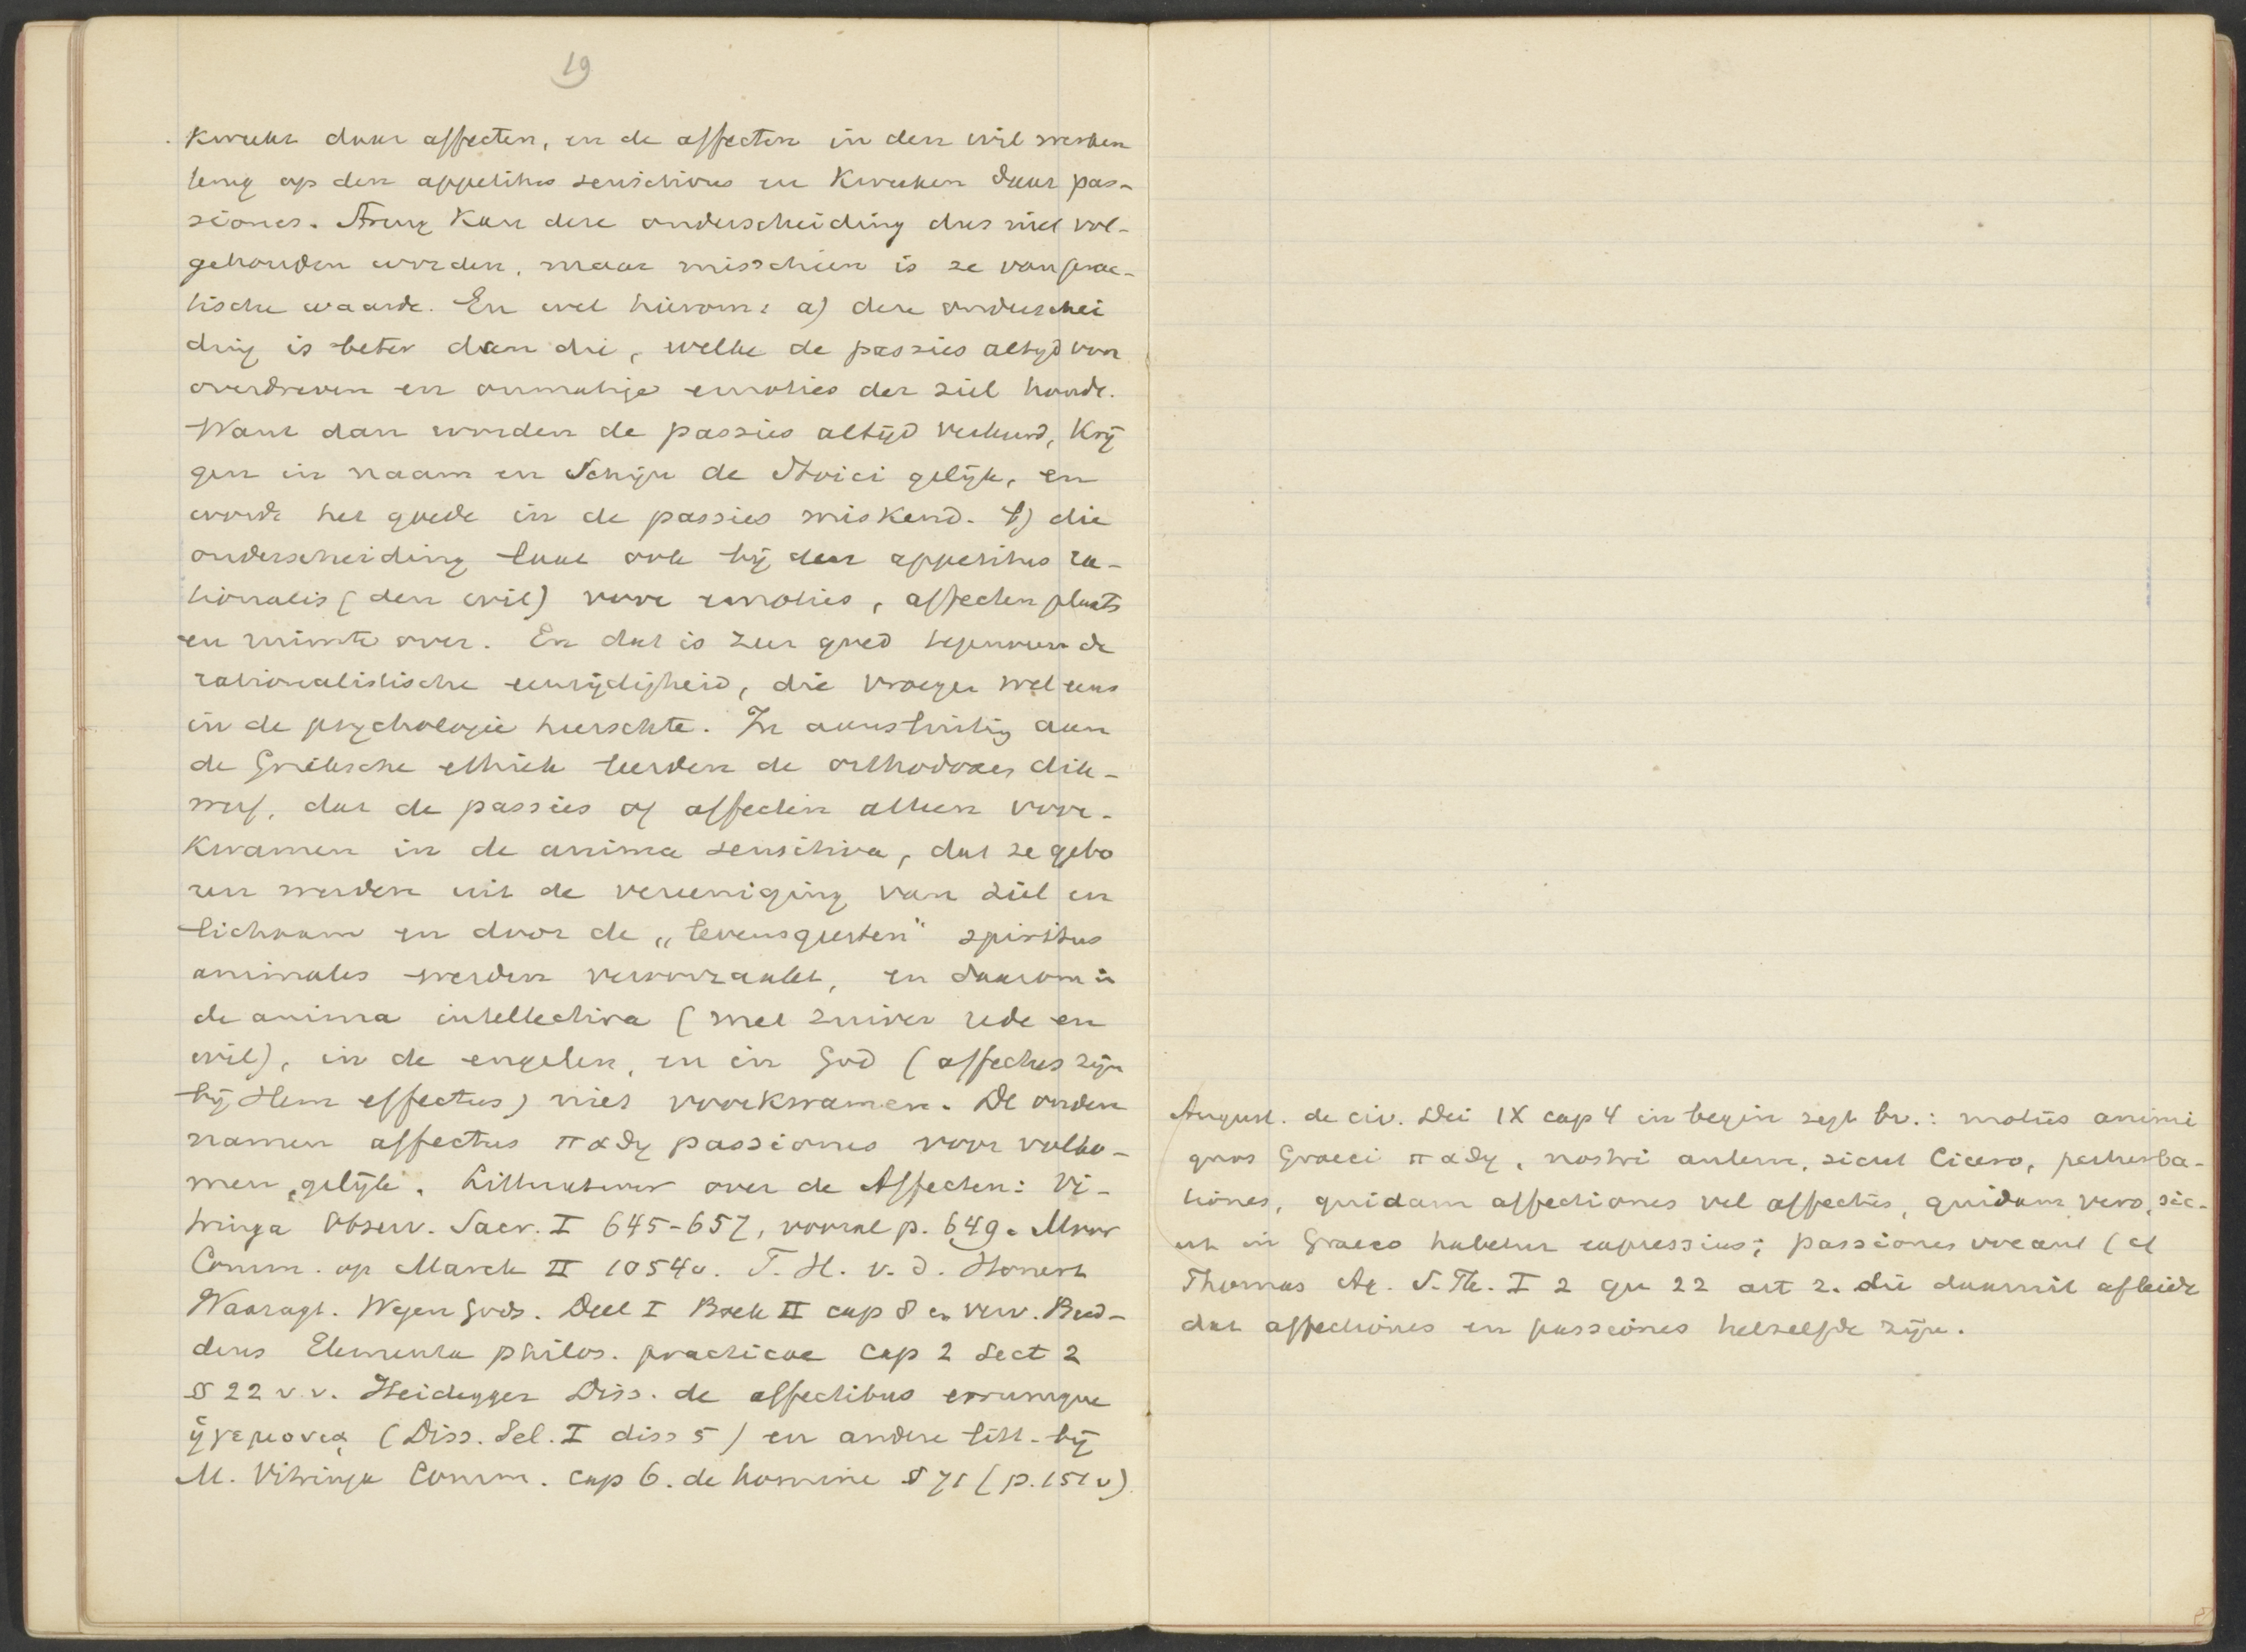 19
kweekt daar affecten, en de affecten in den wil werken
terug op den appetitus sensitivus en kweeken daar pas-
siones. Streng kan deze onderscheiding dus niet vol-
gehouden worden, maar misschien is ze van prac-
tische waarde. En wel hierom: a) deze onderschei
ding is beter dan die, welke de passies altyd voor
overdreven en onmatige emoties der ziel houdt.
Want dan worden de passies altijd verkeerd, krij
gen in naam en schijn de Stoici gelijk, en
wordt het goede in de passies miskend. b) die
onderscheiding laat ook bij den appetitus ra-
tionalis (den wil) voor emoties, affecten plaats
en ruimte over. En dat is zeer goed tegenover de
rationalistische eenzijdigheid, die vroeger wel eens
in de psychologie heerschte. In aansluiting aan
de Grieksche ethiek leerden de orthodoxen dik-
werf, dat de passies of affecten alleen voor-
kwamen in de anima sensitiva, dat ze gebo
ren werden uit de vereeniging van ziel en
lichaam en door de „levensgeesten" spiritus
animales werden veroorzaakt, en daarom in
de anima intellectiva (met zuiver rede en
wil), in de engelen, en in God (affectus zijn
bij Hem effectus) niet voorkwamen. De ouden
namen affectus παθη passiones voor volko-
men gelijk. Litteratuur over de Affecten: Vi-
tringa Observ. Sacr. I 645-657, vooral p. 649. Moor
Comm. op Marck II 1054v. T. H. v. d. Honert
Waaragt. Wegen Gods. Deel I Boek II cap 8 en verv. Bud-
deus Elementa philos. practicae cap 2 Sect 2
§ 22 v.v. Heidegger Diss. de affectibus eorumque
ἡγεμονια (Diss. Sel. I diss 5) en andere litt. bij
M. Vitringa Comm. cap 6. de homine § 71 (p. 151v)
August. de civ. Dei IX cap 4 in begin zegt bv.: motus animi
quos Graeci παθη, nostri autem, sicut Cicero, perturba-
tiones, quidam affectiones vel affectus, quidam vero, sic-
ut in Graeco habetur expressius; passiones vocant (cf
Thomas Aq. S. Th. I 2 qu 22 art 2. die daaruit afleidt
dat affectiones en passiones hetzelfde zijn.